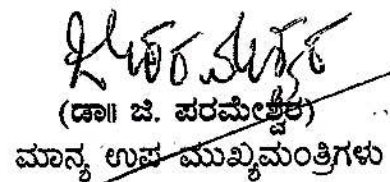 (ಡಾ॥ ಜಿ. ಪರಮೇಶ್ವರ)
ಮಾನ್ಯ ಉಪ ಮುಖ್ಯಮಂತ್ರಿಗಳು